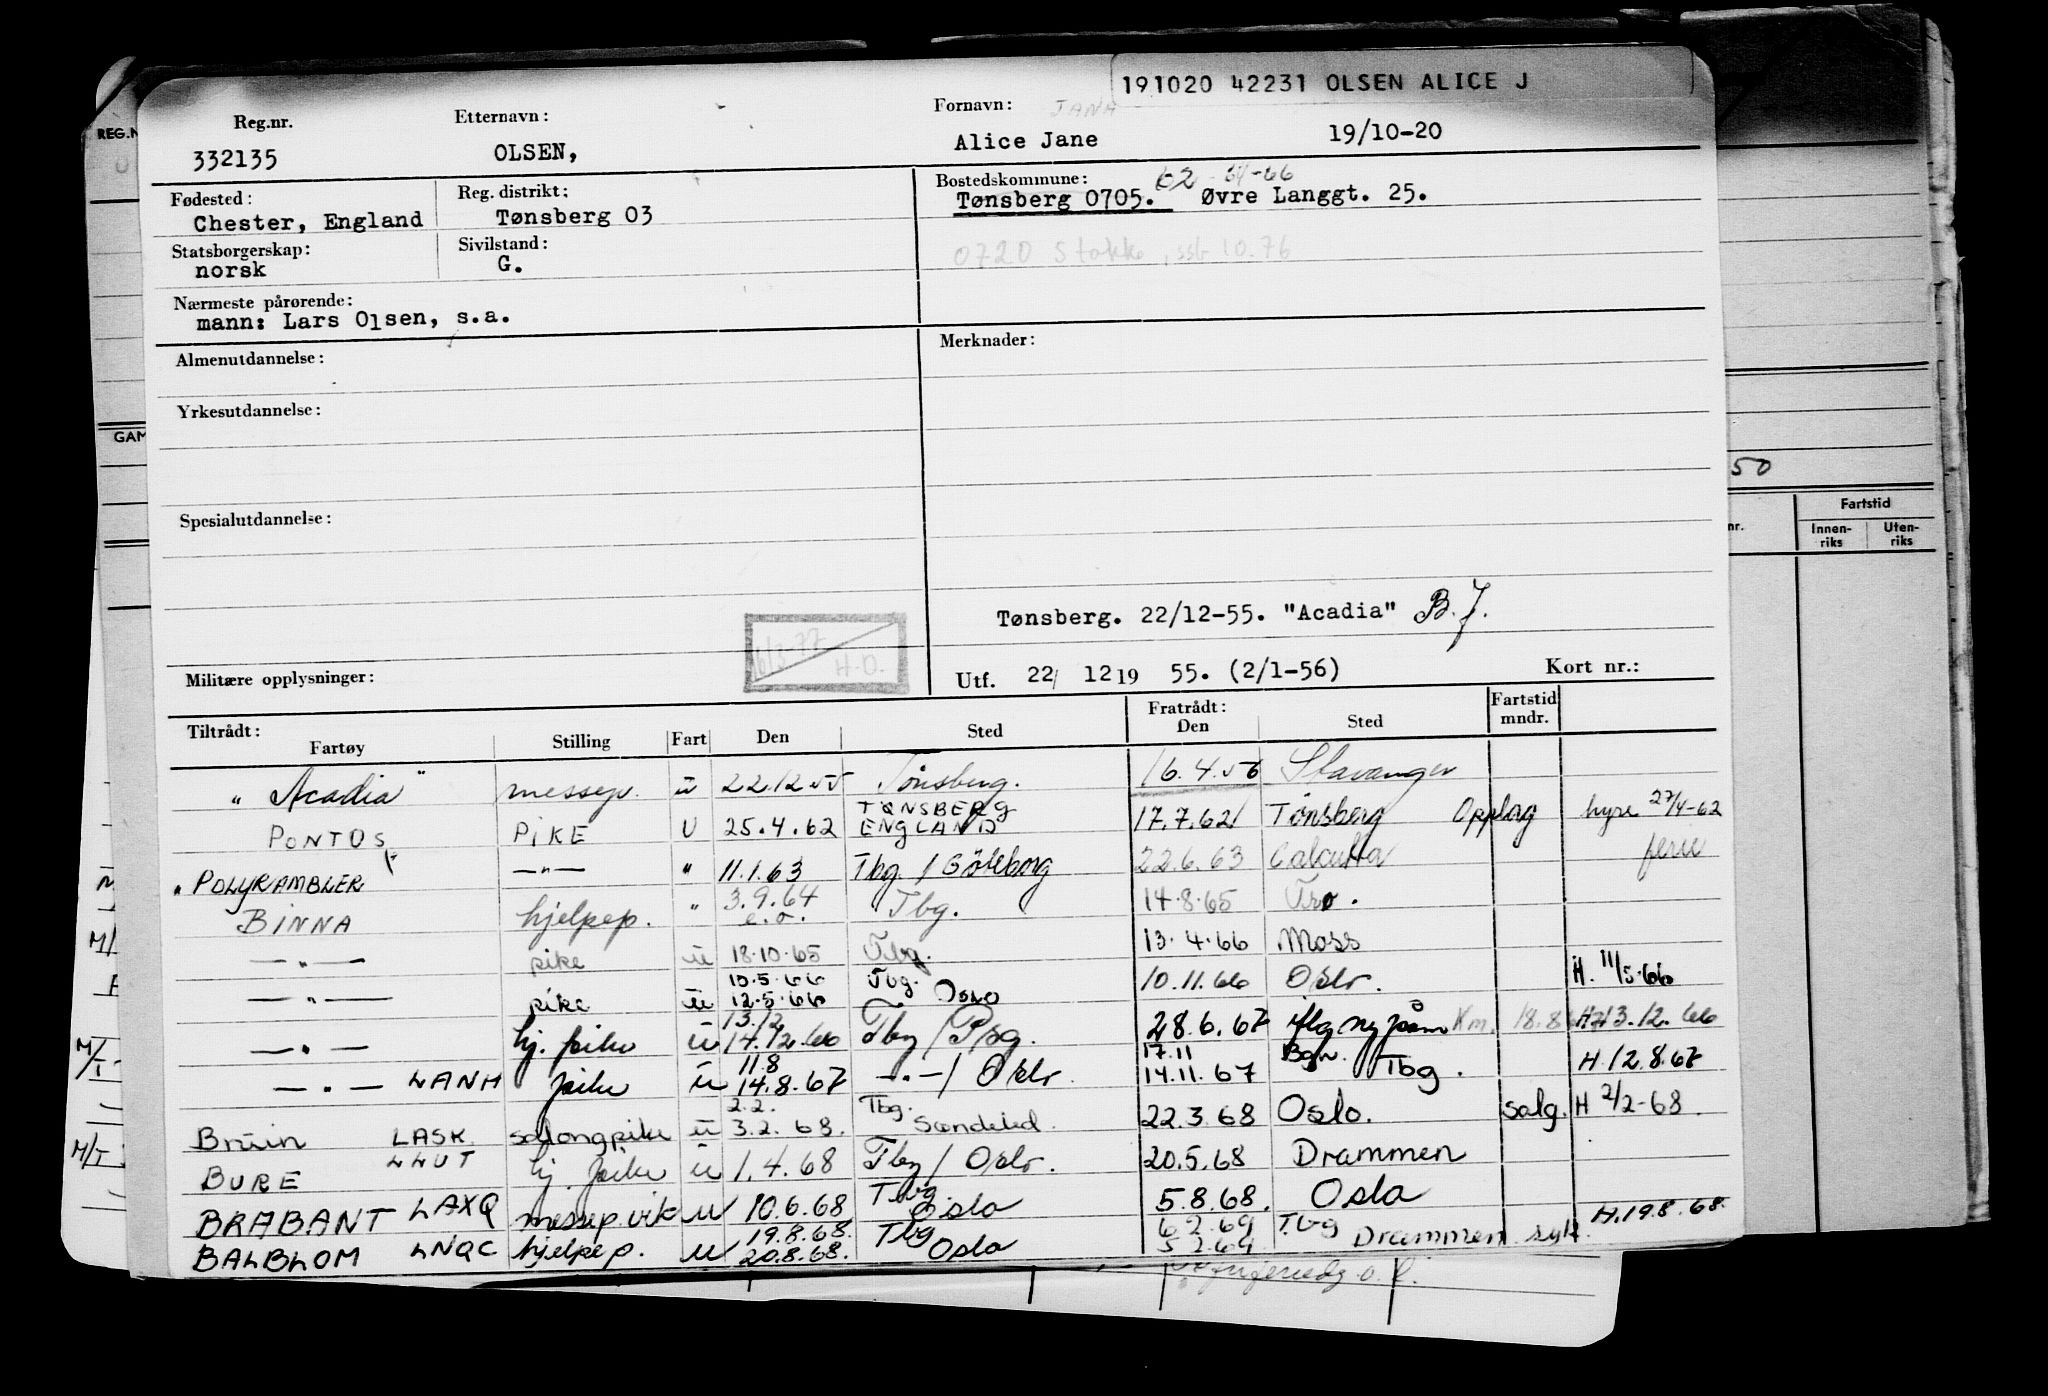 191020 42231 OLSEN ALICE J
Reg.nr. Etternavn: Fornavn: JANA
332135 OLSEN, Alice Jane 19/10-20
Fødested: Reg. distrikt: Bostedskommune: 62 - 64-66
Chester, England Tønsberg 03 Tønsberg 0705. Øvre Langgt. 25.
Statsborgerskap: Sivilstand: 0720 Stokke, 10.76
norsk G.
Nærmeste pårørende:
mann: Lars Olsen, s.a.
Almenutdannelse: Merknader:
Yrkesutdannelse:
Spesialutdannelse:
Tønsberg. 22/12-55. "Acadia" B.J.
6/3-77 H.O.
Militære opplysninger: Utf. 22/ 12 19 55. (2/1-56) Kort nr.:
Tiltrådt: Fratrådt: Fartstid
Fartøy Stilling Fart Den Sted Den Sted mndr.
"Acadia" messep. u 22.12.55 Tønsberg. 16.4.56 Stavanger
PONTOS PIKE U 25.4.62 TØNSBERG ENGLAND 17.7.62 Tønsberg Opplag hyre 27/4-62
"POLYRAMBLER —"— " 11.1.63 Tbg. / Göteborg 22.6.63 Calcutta ferie
BINNA hjelpep. " 3.9.64 e.o. Tbg. 14.8.65
—"— pike u 18.10.65 Tbg. 13.4.66 Moss
—"— pike u 10.5.66 12.5.66 Tbg. Oslo 10.11.66 Oslo. H. 11/5-66
—"— hj. pike u 13.12 14.12.66 Tbg / 28.6.67 H 13.12.66
—"— LANH pike u 11.8 14.8.67 —"— / Oslo. 17.11 14.11.67 Tbg. H. 12.8.67
Bruin LASK salongpike u 2.2. 3.2.68. Tbg. Søndeled. 22.3.68 Oslo. salg. H 2/2-68.
BURE LLUT hj. pike u 1.4.68 Tbg / Oslo. 20.5.68 Drammen
BRABANT LAXQ messep. vik u 10.6.68 Tbg Oslo 5.8.68. Oslo
BALBLOM LNQC hjelpep. u 19.8.68. 20.8.68. Tbg Oslo 6.2.69 5.2.69 Tbg Drammen syk. H. 19.8.68.
REG.N
GAM
50
nr. Fartstid
Innen-riks Uten-riks
M/
M/T
M/T